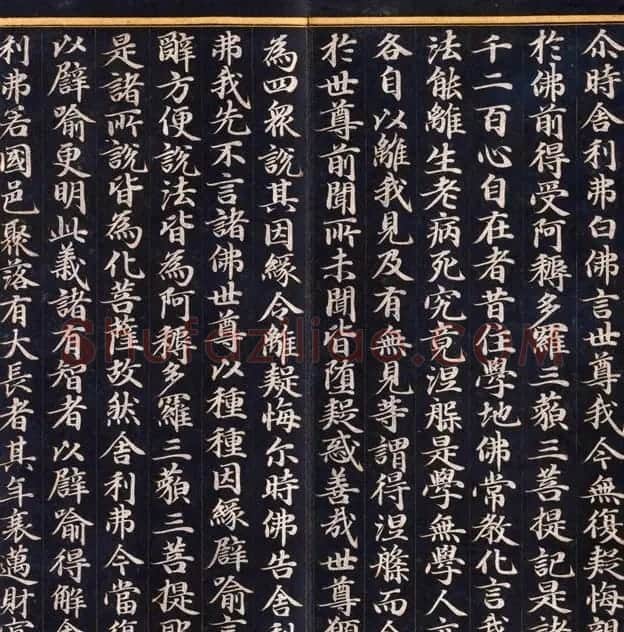 尒時舍利弗白佛言世尊我今無復疑悔親
於佛前得受阿耨多羅三藐三菩提記是諸
千二百心自在者昔住學地佛常教化言我
法能離生老病死究竟涅槃是學無學人亦
各自以離我見及有無見等謂得涅槃而今
於世尊前聞所未聞皆墮疑惑善哉世尊願
為四眾說其因緣令離疑悔尒時佛告舍利
弗我先不言諸佛世尊以種種因緣譬喻言
辭方便說法皆為阿耨多羅三藐三菩提耶
是諸所說皆為化菩薩故然舍利弗今當復
以譬喻更明此義諸有智者以譬喻得解舍
利弗若國邑聚落有大長者其年衰邁財富
Shufaziliao.COM